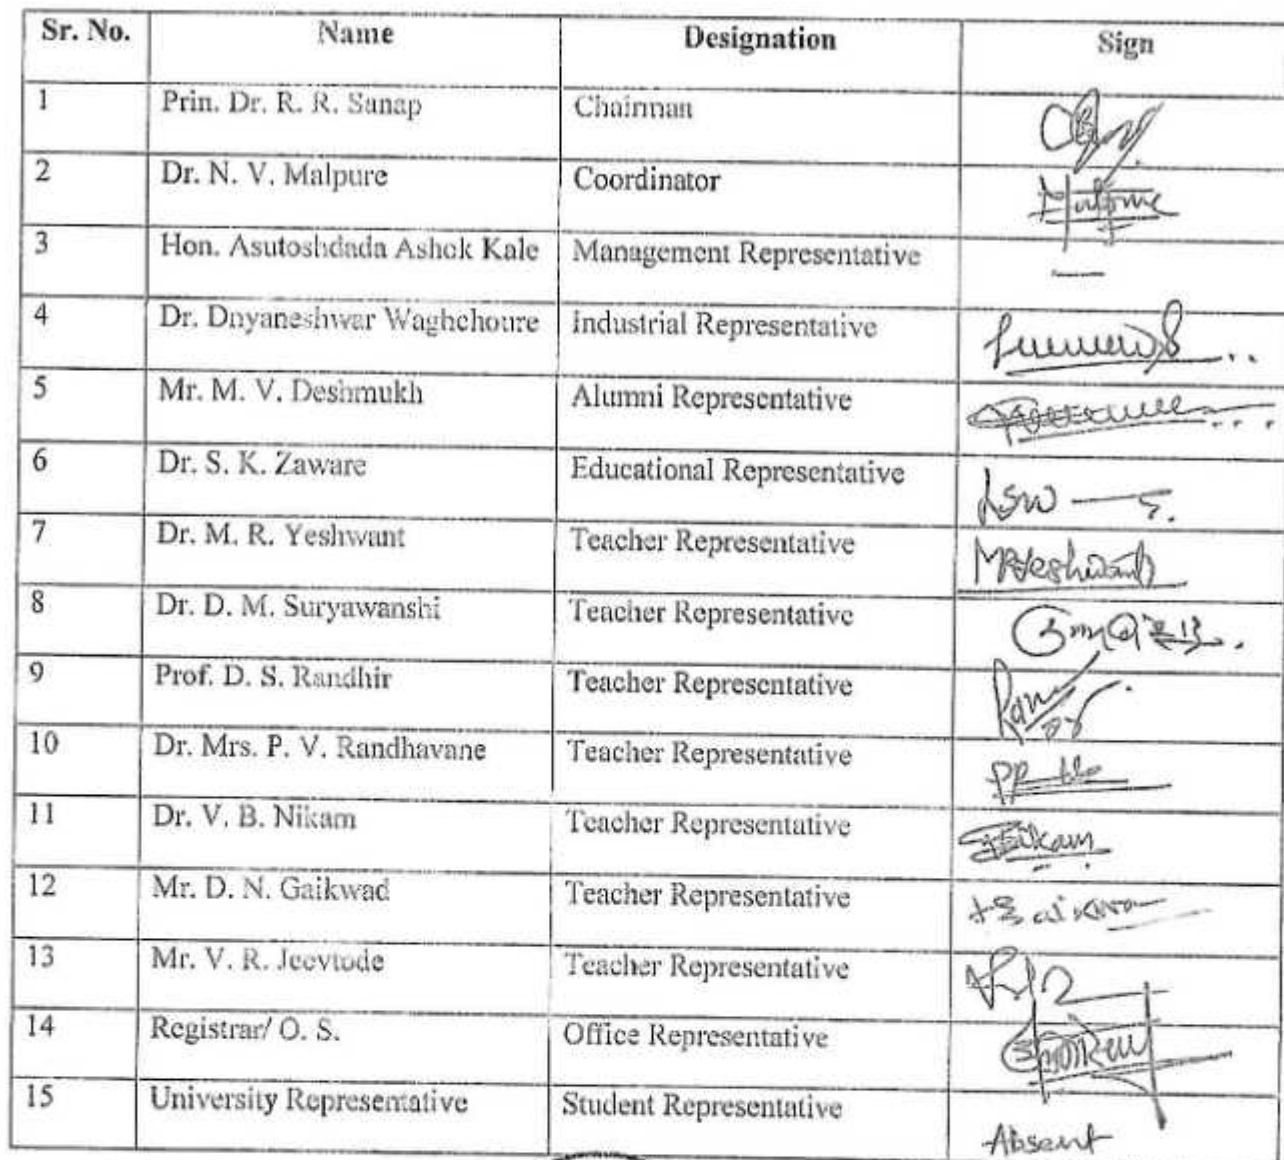 Sr. No. Name Designation Sign
1 Prin. Dr. R. R. Sanap Chairman
2 Dr. N. V. Malpure Coordinator Malpure
3 Hon. Asutoshdada Ashok Kale Management Representative —
4 Dr. Dnyaneshwar Waghchoure Industrial Representative
5 Mr. M. V. Deshmukh Alumni Representative
6 Dr. S. K. Zaware Educational Representative
7 Dr. M. R. Yeshwant Teacher Representative MRYeshwant
8 Dr. D. M. Suryawanshi Teacher Representative
9 Prof. D. S. Randhir Teacher Representative
10 Dr. Mrs. P. V. Randhavane Teacher Representative
11 Dr. V. B. Nikam Teacher Representative
12 Mr. D. N. Gaikwad Teacher Representative
13 Mr. V. R. Jeevtode Teacher Representative
14 Registrar/ O. S. Office Representative
15 University Representative Student Representative Absent